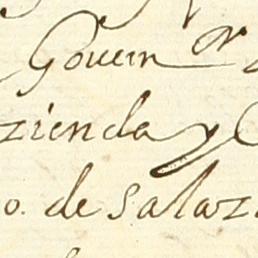 Gouern.or
zienda y
o. de salaz